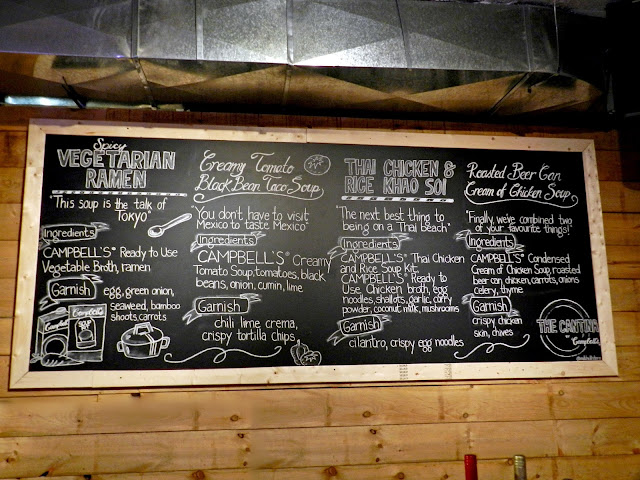 Spicy
VEGETARIAN
RAMEN
"This soup is the talk of
Tokyo"
Ingredients
CAMPBELL'S® Ready to Use
Vegetable Broth, ramen
Garnish
egg, green onion,
seaweed, bamboo
shoots, carrots
Campbell's
SOUP
Creamy Tomato
Black Bean Taco Soup
"You don't have to visit
Mexico to taste Mexico"
Ingredients
CAMPBELL'S® Creamy
Tomato Soup, tomatoes, black
beans, onion, cumin, lime
Garnish
chili lime crema,
crispy tortilla chips
THAI CHICKEN &
RICE KHAO SOI
"The next best thing to
being on a Thai beach"
Ingredients
CAMPBELL'S® Thai Chicken
and Rice Soup Kit,
CAMPBELL'S® Ready to
Use Chicken broth, egg
noodles, shallots, garlic, curry
powder, coconut milk, mushrooms
Garnish
cilantro, crispy egg noodles
Roasted Beer Can
Cream of Chicken Soup
"Finally, we've combined two
of your favourite things!"
Ingredients
CAMPBELL'S® Condensed
Cream of Chicken Soup, roasted
beer can chicken, carrots, onions
celery, thyme
Garnish
crispy chicken
skin, chives
THE CANTINA
BY Campbell's